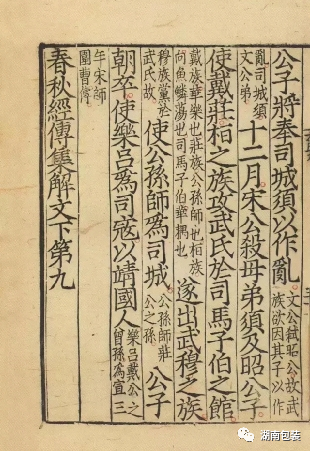 公子將奉司城須以作亂文公弑昭公故武族欲因其子以作
亂司城須文公弟十二月宋公殺母弟須及昭公子
使戴莊桓之族攻武氏於司馬子伯之館
戴族華樂也莊族公孫師也桓族向魚鱗蕩也司馬子伯華耦也遂出武穆之族
穆族黨於武氏故使公孫師爲司城公孫師莊公之孫公子
朝卒使樂呂爲司寇以靖國人樂呂戴公之曾孫爲宣三
年宋師圍曹傳
春秋經傳集解文下第九
湖南包装